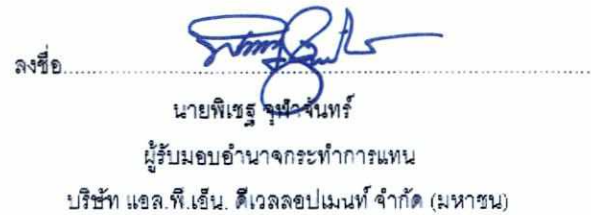 ลงชื่อ
นายพิเชฐ จุฬาจันทร์
ผู้รับมอบอำนาจกระทำการแทน
บริษัท แอล.พี.เอ็น. ดีเวลลอปเมนท์ จำกัด (มหาชน)